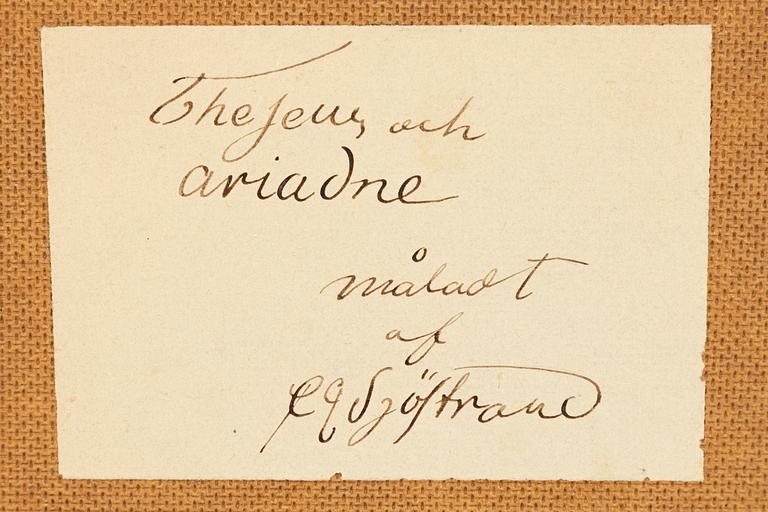 Theseus och
ariadne
måladt
af
C E Sjöstrand